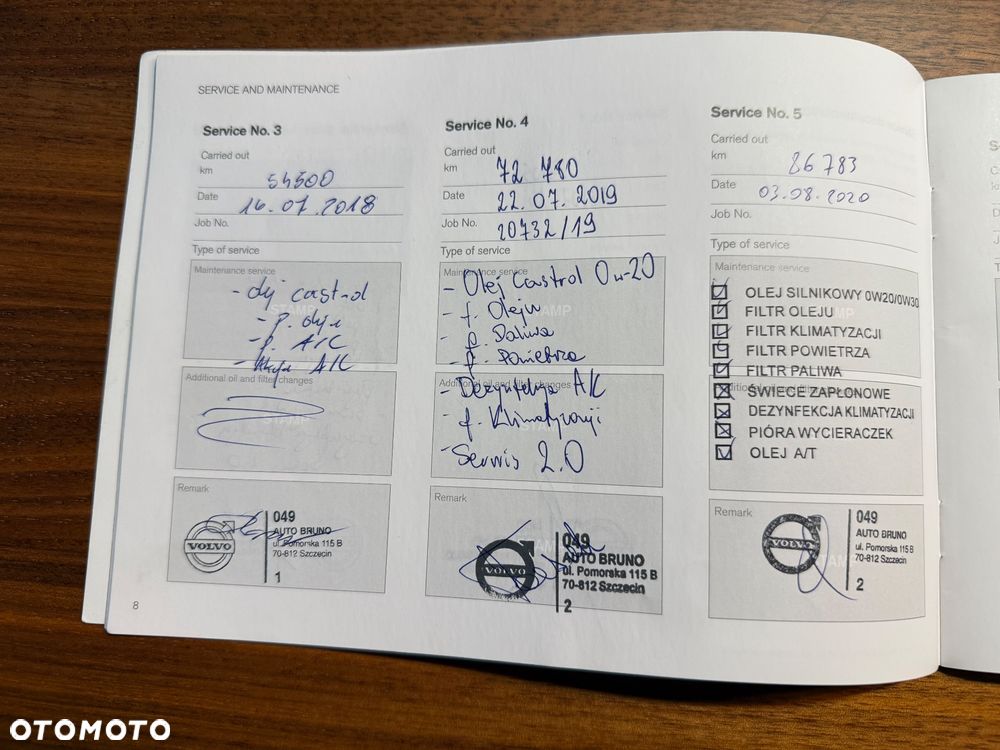 SERVICE AND MAINTENANCE
Service No. 3
Carried out
km 54500
Date 16.07.2018
Job No.
Type of service
Maintenance service
- olej castrol
- f. oleju
- f. A/C
- A/C
Additional oil and filter changes
Remark
VOLVO
049
AUTO BRUNO
ul. Pomorska 115 B
70-812 Szczecin
1
8
Service No. 4
Carried out
km 72 780
Date 22.07.2019
Job No. 20732/19
Type of service
Maintenance service
- Olej Castrol 0w-20
- f. Oleju
- f. Paliwa
- f. Powietrza
Additional oil and filter changes
- Dezynfekcja A/C
- f. Klimatyzacji
- Serwis 2.0
Remark
VOLVO
049
AUTO BRUNO
ul. Pomorska 115 B
70-812 Szczecin
2
Service No. 5
Carried out
km 86783
Date 03.08.2020
Job No.
Type of service
Maintenance service
OLEJ SILNIKOWY 0W20/0W30
FILTR OLEJU
FILTR KLIMATYZACJI
FILTR POWIETRZA
FILTR PALIWA
Additional oil and filter changes
ŚWIECE ZAPŁONOWE
DEZYNFEKCJA KLIMATYZACJI
PIÓRA WYCIERACZEK
OLEJ A/T
Remark
VOLVO
049
AUTO BRUNO
ul. Pomorska 115 B
70-812 Szczecin
2
OTOMOTO